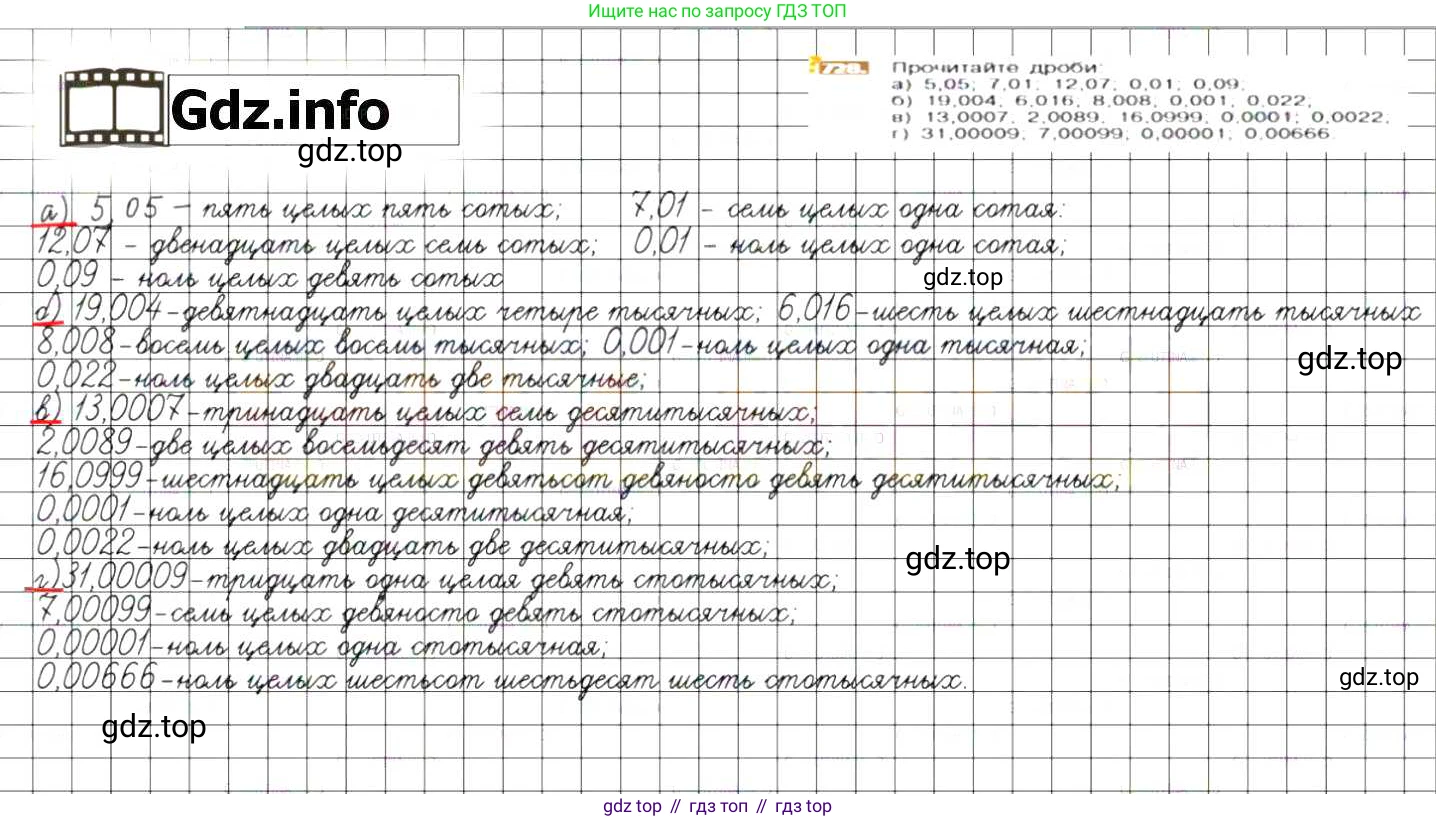 Ищите нас по запросу ГДЗ ТОП
Gdz.info
gdz.top
728. Прочитайте дроби:
а) 5,05; 7,01; 12,07; 0,01; 0,09;
б) 19,004; 6,016; 8,008; 0,001; 0,022;
в) 13,0007; 2,0089; 16,0999; 0,0001; 0,0022;
г) 31,00009; 7,00099; 0,00001; 0,00666.
а) 5,05 – пять целых пять сотых; 7,01 – семь целых одна сотая;
12,07 – двенадцать целых семь сотых; 0,01 – ноль целых одна сотая;
0,09 – ноль целых девять сотых
gdz.top
б) 19,004 – девятнадцать целых четыре тысячных; 6,016 – шесть целых шестнадцать тысячных
8,008 – восемь целых восемь тысячных; 0,001 – ноль целых одна тысячная;
gdz.top
0,022 – ноль целых двадцать две тысячные;
в) 13,0007 – тринадцать целых семь десятитысячных;
2,0089 – две целых восемьдесят девять десятитысячных;
16,0999 – шестнадцать целых девятьсот девяносто девять десятитысячных;
0,0001 – ноль целых одна десятитысячная;
0,0022 – ноль целых двадцать две десятитысячных;
gdz.top
г) 31,00009 – тридцать одна целая девять стотысячных;
7,00099 – семь целых девяносто девять стотысячных;
0,00001 – ноль целых одна стотысячная;
0,00666 – ноль целых шестьсот шестьдесят шесть стотысячных.
gdz.top
gdz.top
gdz top // гдз топ // гдз top